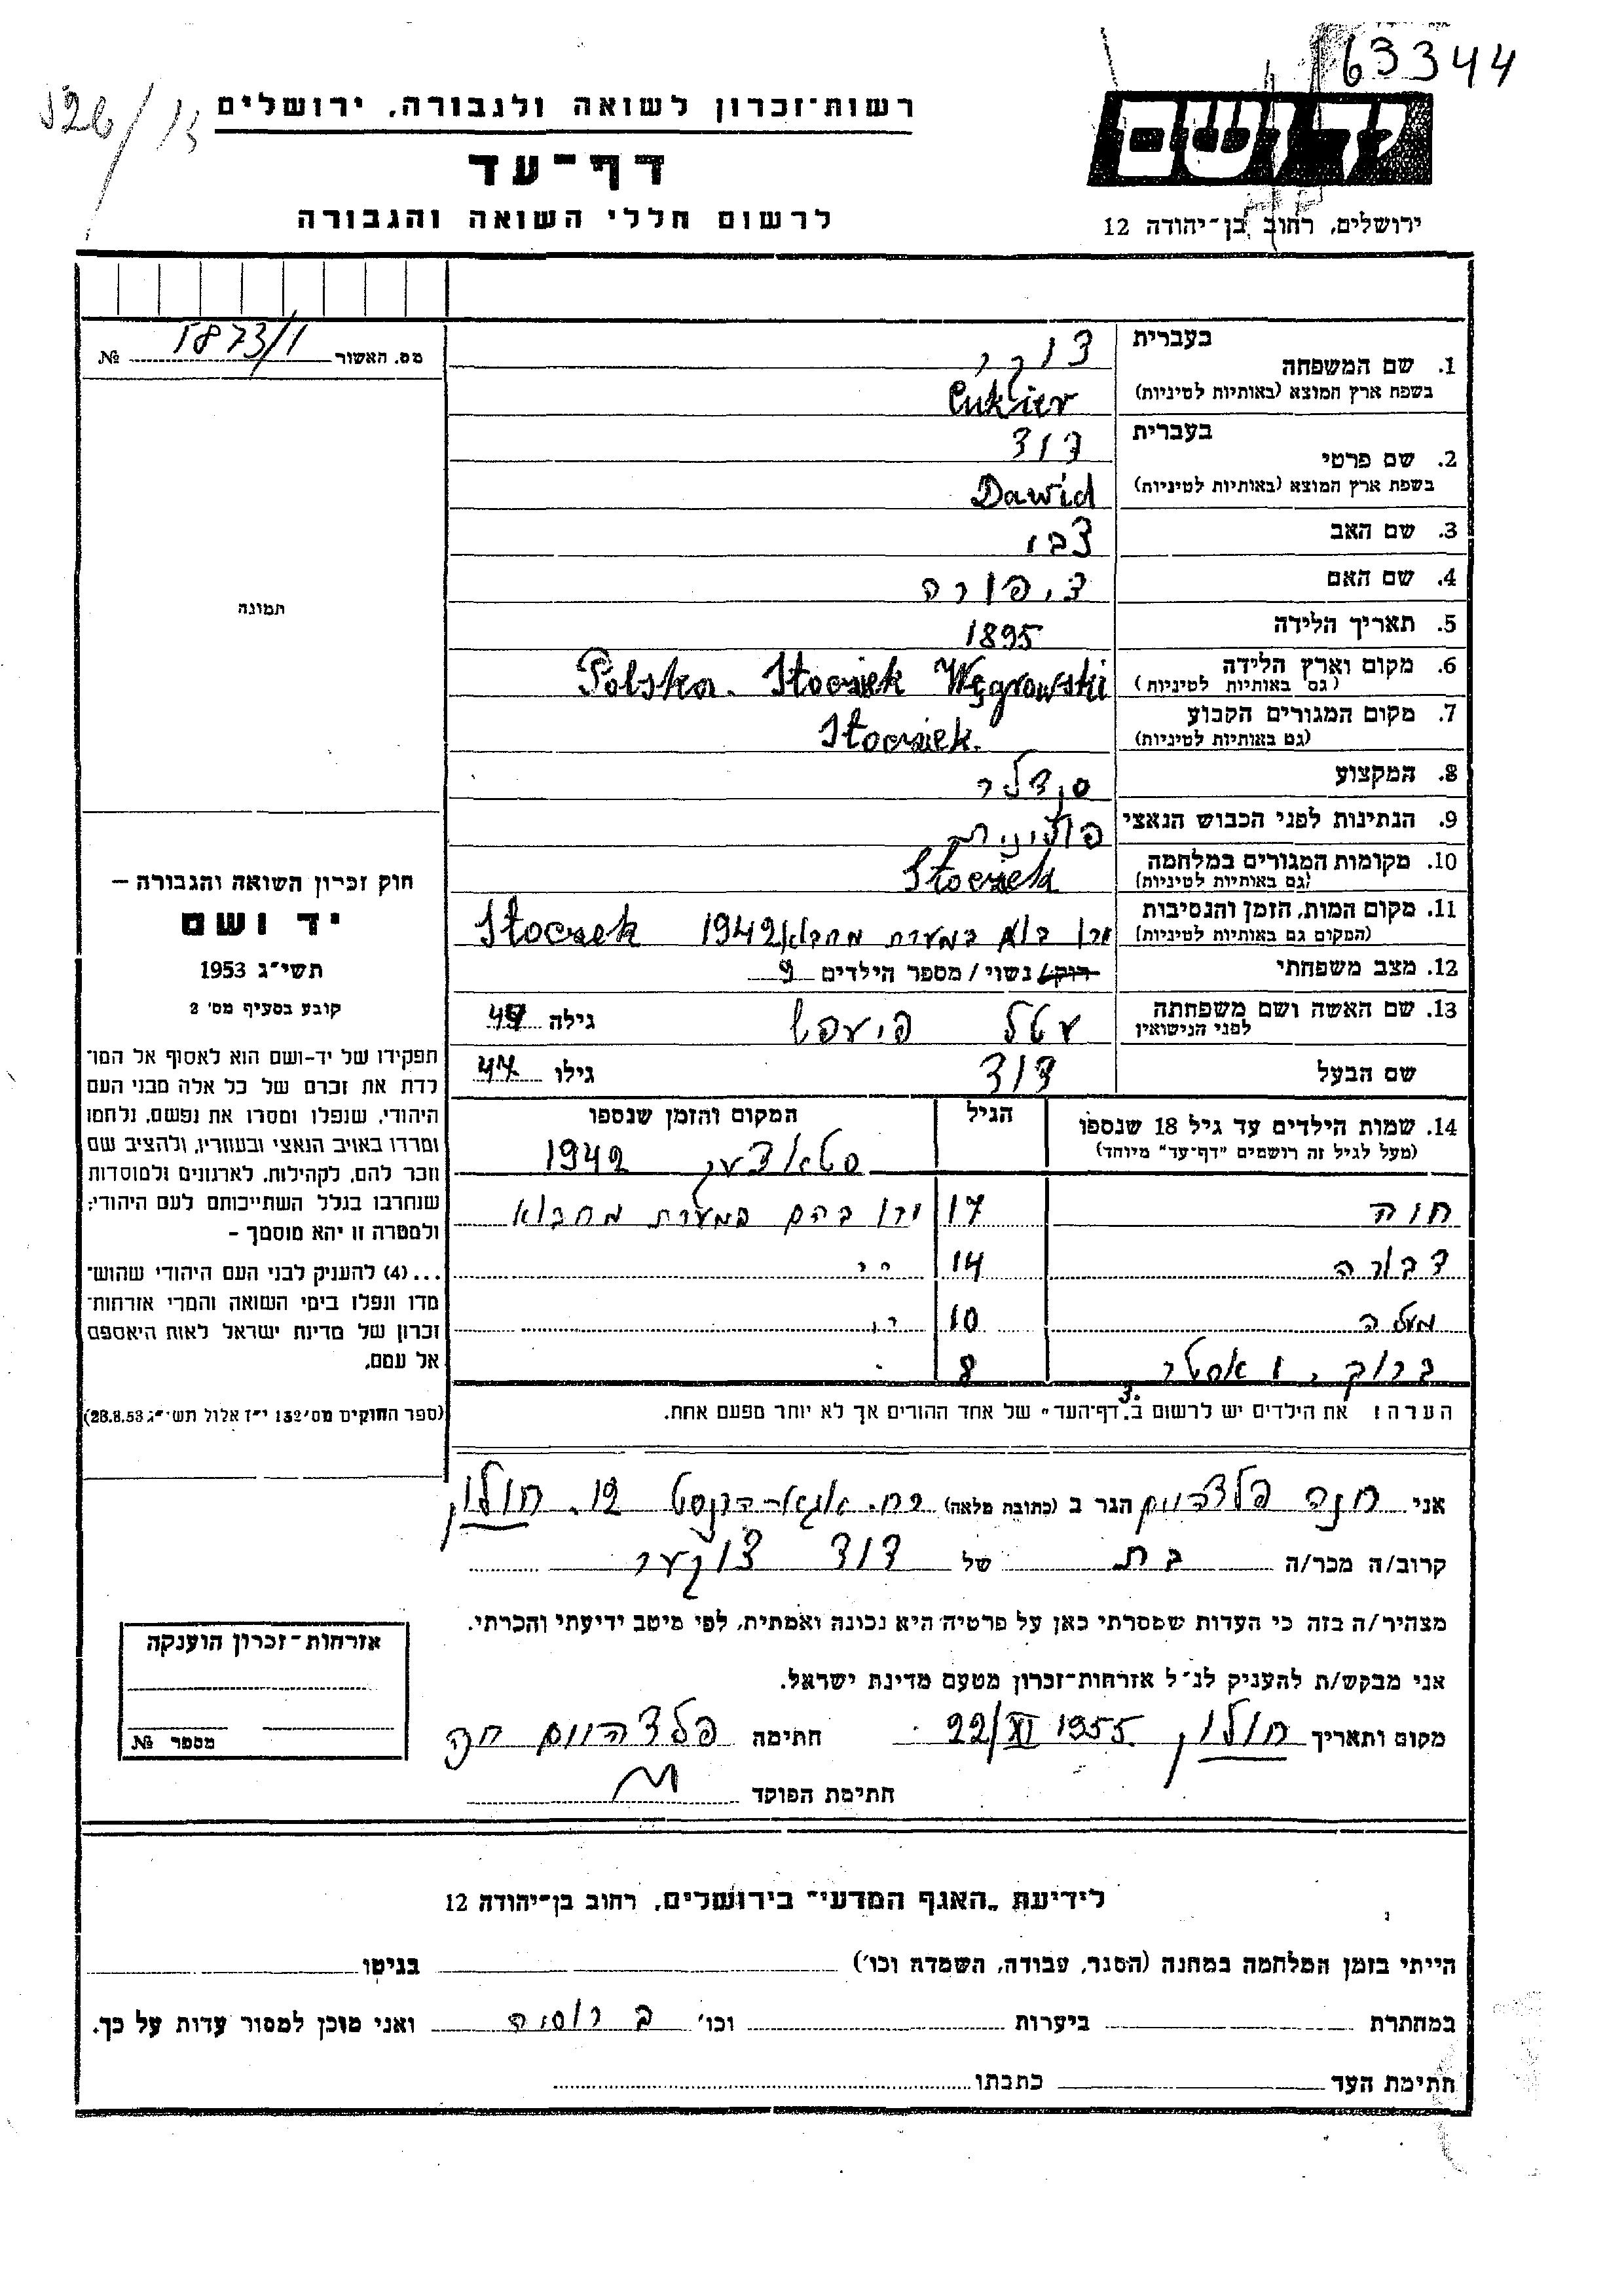 63344
רשות־זכרון לשואה ולגבורה, ירושלים
דף־עד
לרשום חללי השואה והגבורה
יד ושם
ירושלים, רחוב בן־יהודה 12
מס. האשור 5873/1 №
תמונה
חוק זכרון השואה והגבורה –
יד ושם
תשי"ג 1953
קובע בסעיף מס' 2
תפקידו של יד-ושם הוא לאסוף אל המו־
לדת את זכרם של כל אלה מבני העם
היהודי, שנפלו ומסרו את נפשם, נלחמו
ומרדו באויב הנאצי ובעוזריו, ולהציב שם
וזכר להם, לקהילות, לארגונים ולמוסדות
שנחרבו בגלל השתייכותם לעם היהודי;
ולמטרה זו יהא מוסמך –
...(4) להעניק לבני העם היהודי שהוש־
מדו ונפלו בימי השואה והמרי אזרחות־
זכרון של מדינת ישראל לאות היאספם
אל עמם.
(ספר החוקים מס' 132 י"ז אלול תשי"ג 28.8.53)
1. שם המשפחה בעברית צוקר
בשפת ארץ המוצא (באותיות לטיניות) Cukier
2. שם פרטי בעברית דוד
בשפת ארץ המוצא (באותיות לטיניות) Dawid
3. שם האב צבי
4. שם האם ציפורה
5. תאריך הלידה 1895
6. מקום וארץ הלידה (גם באותיות לטיניות) Polska. Stoczek Węgrowski
7. מקום המגורים הקבוע (גם באותיות לטיניות) Stoczek.
8. המקצוע סנדלר
9. הנתינות לפני הכבוש הנאצי פולנית
10. מקומות המגורים במלחמה (גם באותיות לטיניות) Stoczek
11. מקום המות, הזמן והנסיבות (המקום גם באותיות לטיניות) ירו בו במערת מחבוא 1942 Stoczek
12. מצב משפחתי רוק/ נשוי / מספר הילדים 9
13. שם האשה ושם משפחתה לפני הנישואין עטל גילה
שם הבעל דוד גילו 47
14. שמות הילדים עד גיל 18 שנספו (מעל לגיל זה רושמים "דף־עד" מיוחד) הגיל המקום והזמן שנספו
סטאצעק 1942
חוה 17 ירו בהם במערת מחבוא
דבורה 14 "
10 "
8
הערה: את הילדים יש לרשום ב"דף־העד" של אחד ההורים אך לא יותר מפעם אחת.
אני חנה פלדהיים הגר ב (כתובת מלאה) 12. חולון
קרוב/ה מכר/ה בת של דוד צוקער
מצהיר/ה בזה כי העדות שמסרתי כאן על פרטיה היא נכונה ואמתית, לפי מיטב ידיעתי והכרתי.
אני מבקש/ת להעניק לנ"ל אזרחות־זכרון מטעם מדינת ישראל.
מקום ותאריך חולון 22/XI 1955. חתימה פלדהיים חנה
חתימת הפוקד
אזרחות־זכרון הוענקה
מספר №
לידיעת "האגף המדעי" בירושלים, רחוב בן־יהודה 12
הייתי בזמן המלחמה במחנה (הסגר, עבודה, השמדה וכו') בגיטו
במחתרת ביערות וכו' ברוסיה ואני מוכן למסור עדות על כך.
חתימת העד כתבתו